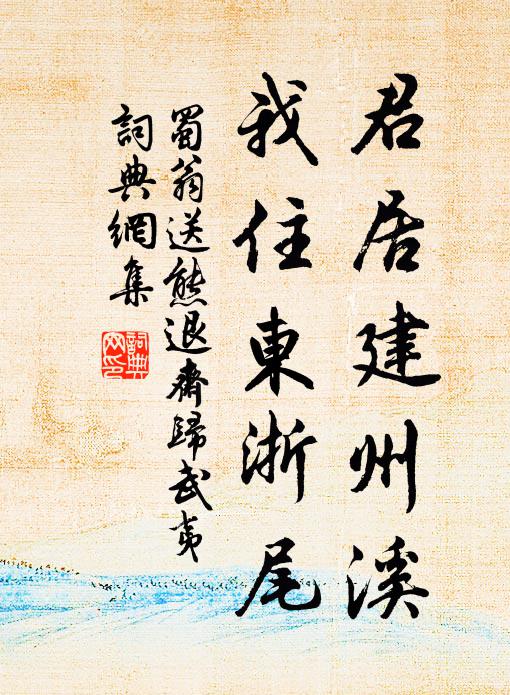 君居建州溪
我住東浙尾
蜀翁送熊退齋歸武夷
詞典網集
詞典
网印